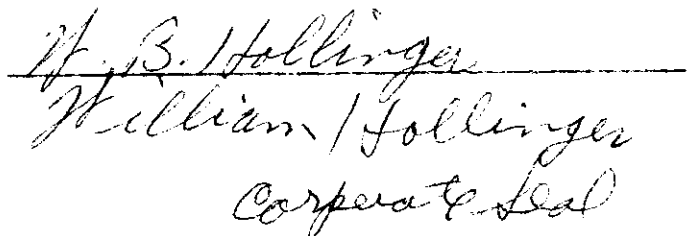 W. B. Hollinger
William Hollinger
Corporate Seal